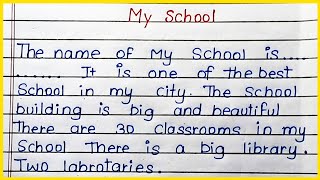 My School
The name of My School is....
....... It is one of the best
School in my city. The School
building is big and beautiful
There are 30 classrooms in my
School There is a big library.
Two labrotaries.